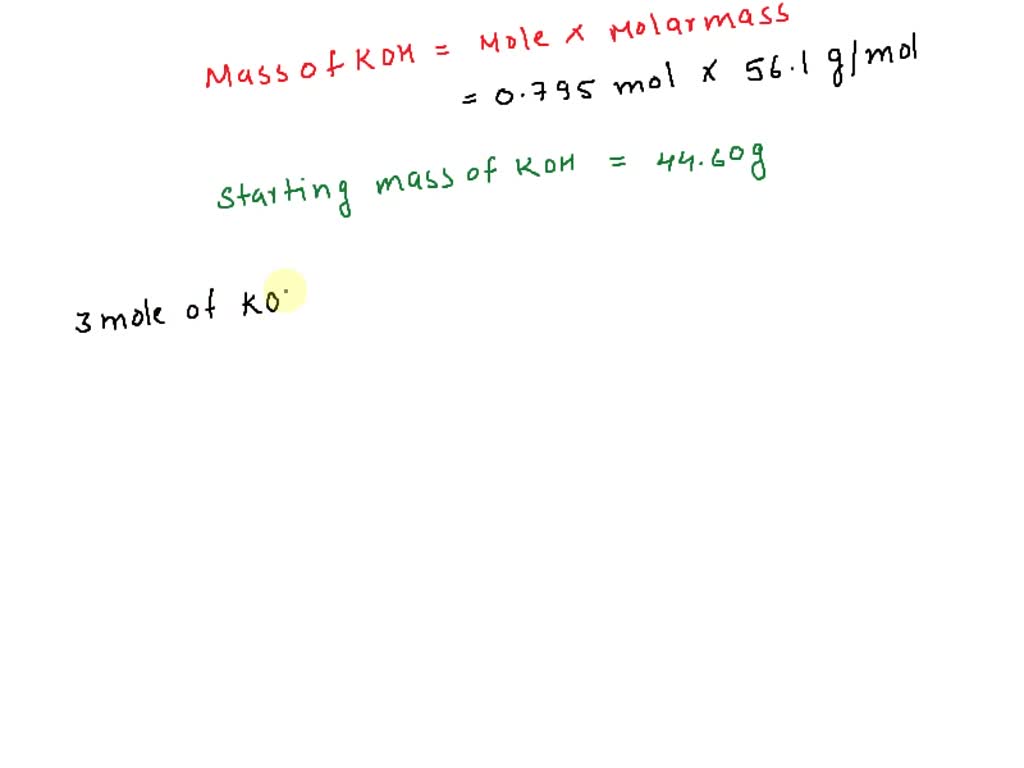 Mass of KOH = Mole × Molarmass
= 0.795 mol × 56.1 g/mol
Starting mass of KOH = 44.60g
3 mole of KO